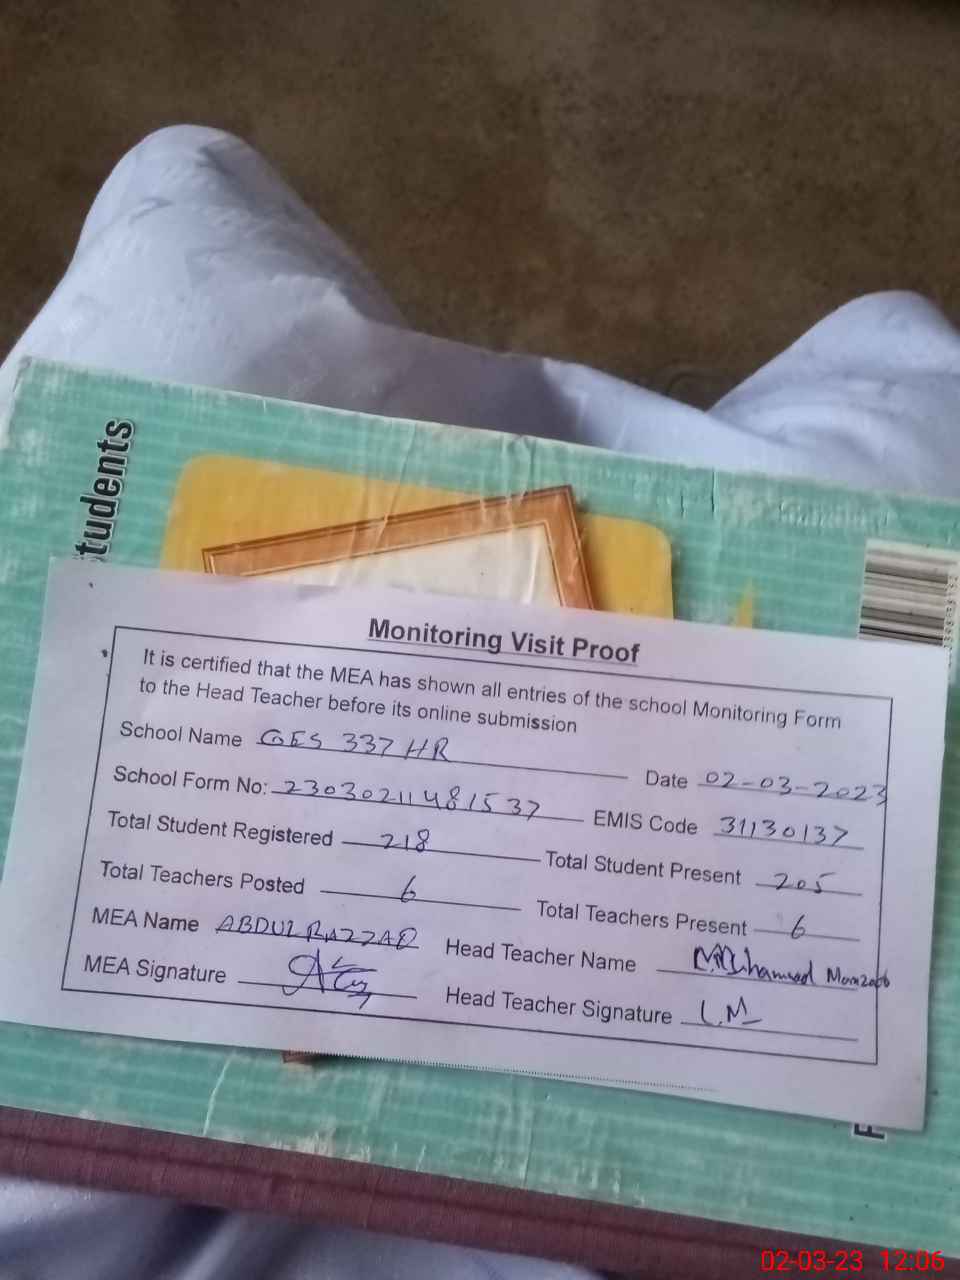 Students
Monitoring Visit Proof
It is certified that the MEA has shown all entries of the school Monitoring Form
to the Head Teacher before its online submission
School Name GES 337 HR
Date 02-03-2023
School Form No: 23030211481537
EMIS Code 31130137
Total Student Registered 218
Total Student Present 205
Total Teachers Posted 6
Total Teachers Present 6
MEA Name ABDUL RAZZAQ
Head Teacher Name Muhammad
MEA Signature
Head Teacher Signature L.M
02-03-23 12:06